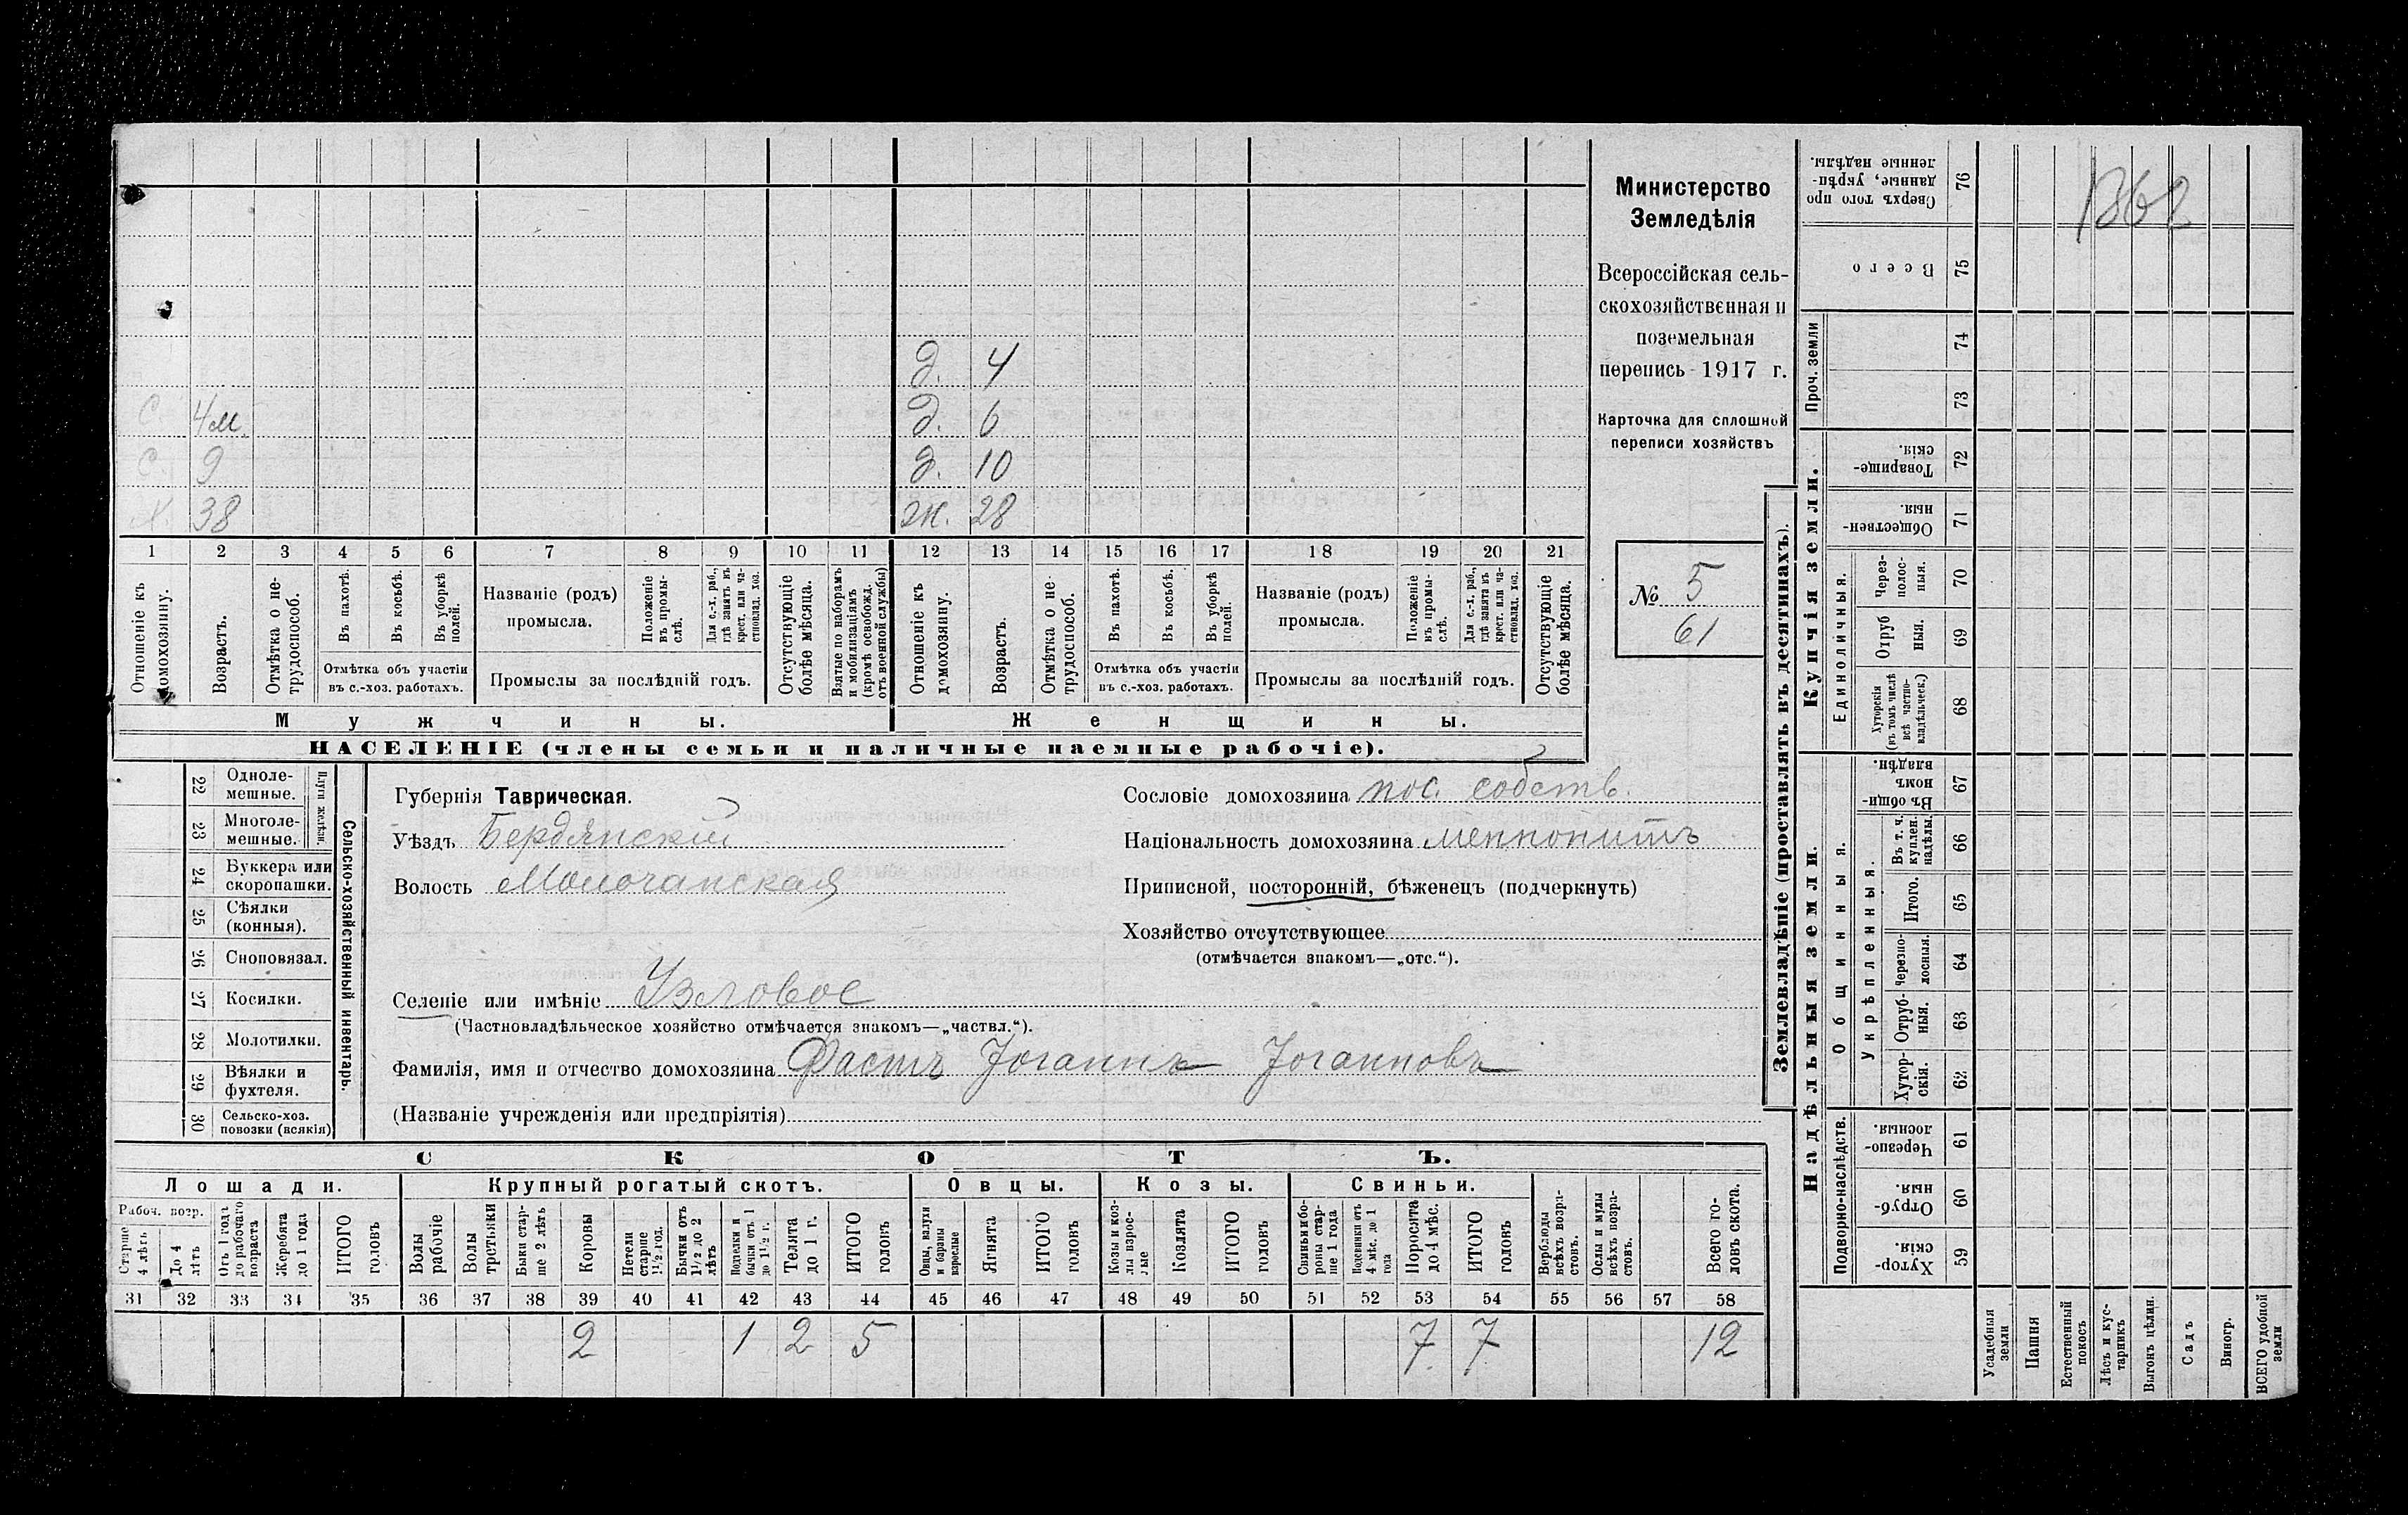 д. 4
С. 4 м. д. 6
С. 9 д. 10
Х. 38 ж. 28
1 2 3 4 5 6 7 8 9 10 11 12 13 14 15 16 17 18 19 20 21
Отношеніе къ домохозяину.
Возрастъ.
Отмѣтка о не-
трудоспособ.
Въ пахотѣ.
Въ косьбѣ.
Въ уборкѣ
полей.
Отмѣтка объ участіи
въ с.-хоз. работахъ.
Названіе (родъ)
промысла.
Положеніе
въ промы-
слѣ.
Для с.-х. раб.,
гдѣ занятъ въ
крест. или ча-
стновлад. хоз.
Промыслы за послѣдній годъ.
Отсутствующіе
болѣе мѣсяца.
Взятые по наборамъ
и мобилизаціямъ
(кромѣ освобожд.
отъ военной службы)
Отношеніе къ
домохозяину.
Возрастъ.
Отмѣтка о не-
трудоспособ.
Въ пахотѣ.
Въ косьбѣ.
Въ уборкѣ
полей.
Отмѣтка объ участіи
въ с.-хоз. работахъ.
Названіе (родъ)
промысла.
Положеніе
въ промы-
слѣ.
Для с.-х. раб.,
гдѣ занята въ
крест. или ча-
стновлад. хоз.
Промыслы за послѣдній годъ.
Отсутствующіе
болѣе мѣсяца.
Мужчины. Женщины.
НАСЕЛЕНІЕ (члены семьи и наличные наемные рабочіе).
Министерство
Земледѣлія
Всероссійская сель-
скохозяйственная и
поземельная
перепись 1917 г.
Карточка для сплошной
переписи хозяйствъ
№ 5
61
22 Однолe-
мешные.
23 Многоле-
мешные.
Плуги желѣзн.
24 Буккера или
скоропашки.
25 Сѣялки
(конныя).
26 Сноповязал.
27 Косилки.
28 Молотилки.
29 Вѣялки и
фухтеля.
30 Сельско-хоз.
повозки (всякія)
Сельско-хозяйственный инвентарь.
Губернія Таврическая.
Уѣздъ Бердянскій
Волость Молочанская
Селеніе или имѣніе Узловое
(Частновладѣльческое хозяйство отмѣчается знакомъ—„частвл.“).
Фамилія, имя и отчество домохозяина Фастъ Іоганнъ Іоганновъ
(Названіе учрежденія или предпріятія)
Сословіе домохозяина пос. собств.
Національность домохозяина меннонитъ
Приписной, посторонній, бѣженецъ (подчеркнуть)
Хозяйство отсутствующее
(отмѣчается знакомъ—„отс.“).
СКОТЪ.
Лошади. Крупный рогатый скотъ. Овцы. Козы. Свиньи.
Рабоч. возр.
Старше
4 лѣтъ
До 4
лѣтъ
Отъ 1 года
до рабочаго
возраста
Жеребята
до 1 года
ИТОГО
головъ
Волы
рабочіе
Волы
третьяки
Быки стар-
ше 2 лѣтъ
Коровы
Нетели
старше
1½ год.
Бычки отъ
1½ до 2
лѣтъ
Подтелки и
бычки отъ 1
до 1½ г.
Телята
до 1 г.
ИТОГО
головъ
Овцы, валухи
и бараны
взрослые
Ягнята
ИТОГО
головъ
Козы и коз-
лы взрос-
лые
Козлята
ИТОГО
головъ
Свиньи и бо-
ровы стар-
ше 1 года
Подсвинки отъ
4 мѣс. до 1
года
Поросята
до 4 мѣс.
ИТОГО
головъ
Верблюды
всѣхъ возра-
стовъ.
Ослы и мулы
всѣхъ возра-
стовъ.
Всего го-
ловъ скота.
31 32 33 34 35 36 37 38 39 40 41 42 43 44 45 46 47 48 49 50 51 52 53 54 55 56 57 58
2 1 2 5 7 7 12
Землевладѣніе (проставлять въ десятинахъ).
1862
Сверхъ того про
данные, укрѣп-
ленные надѣлы. 76
Всего 75
Проч. земли
74
73
Купчія земли.
Товарище-
скія. 72
Обществен-
ныя. 71
Единоличныя.
Через-
полос-
ныя. 70
Отруб
ныя. 69
Хуторскія
(въ томъ числѣ
всѣ частно-
владѣльческ.) 68
Надѣльныя земли.
Общинныя.
Въ общи-
номъ
владѣн. 67
Укрѣпленныя.
Въ т. ч.
куплен.
надѣлы. 66
Итого. 65
Черезпо-
лосныя. 64
Отруб-
ныя. 63
Хутор-
скія. 62
Подворно-наслѣдств.
Черезпо-
лосныя. 61
Отруб-
ныя. 60
Хутор-
скія. 59
Усадебныя
земли
Пашня
Естественный
покосъ
Лѣсъ и кус-
тарникъ
Выгонъ цѣлин.
Садъ
Виногр.
ВСЕГО удобной
земли